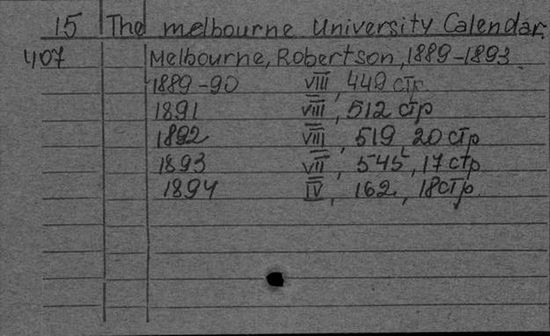 15 The melbourne University Calendar.
407 Melbourne, Robertson, 1889-1893.
1889-90 VIII, 449 стр
1891 VIII, 512 стр
1892 VIII, 519, 20 стр
1893 VII, 545, 17 стр
1894 IV, 162, 18 стр.